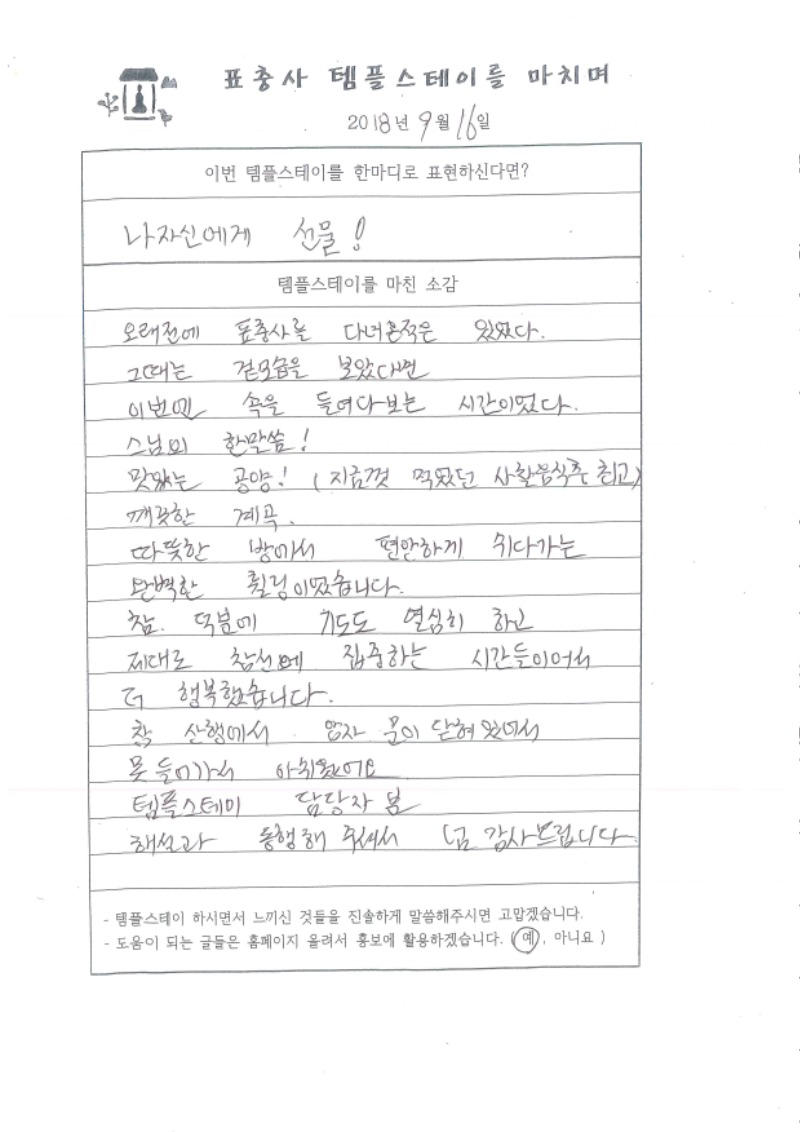 표충사 템플스테이를 마치며
2018년 9월 16일
이번 템플스테이를 한마디로 표현하신다면?
나 자신에게 선물!
템플스테이를 마친 소감
오래전에 표충사를 다녀온적은 있었다.
그때는 겉모습을 보았다면
이번엔 속을 들여다보는 시간이었다.
스님의 한말씀!
맛있는 공양! (지금껏 먹었던 사찰음식중 최고)
깨끗한 계곡.
따뜻한 방에서 편안하게 쉬다가는
완벽한 힐링이었습니다.
참. 덕분에 기도도 열심히 하고
제대로 참선에 집중하는 시간들이어서
더 행복했습니다.
참 산행에서 암자 문이 닫혀있어서
못 들어가서 아쉬웠어요
템플스테이 담당자 분
해설과 동행해 주셔서 넘 감사드립니다.
- 템플스테이 하시면서 느끼신 것들을 진솔하게 말씀해주시면 고맙겠습니다.
- 도움이 되는 글들은 홈페이지 올려서 홍보에 활용하겠습니다. (예, 아니요 )